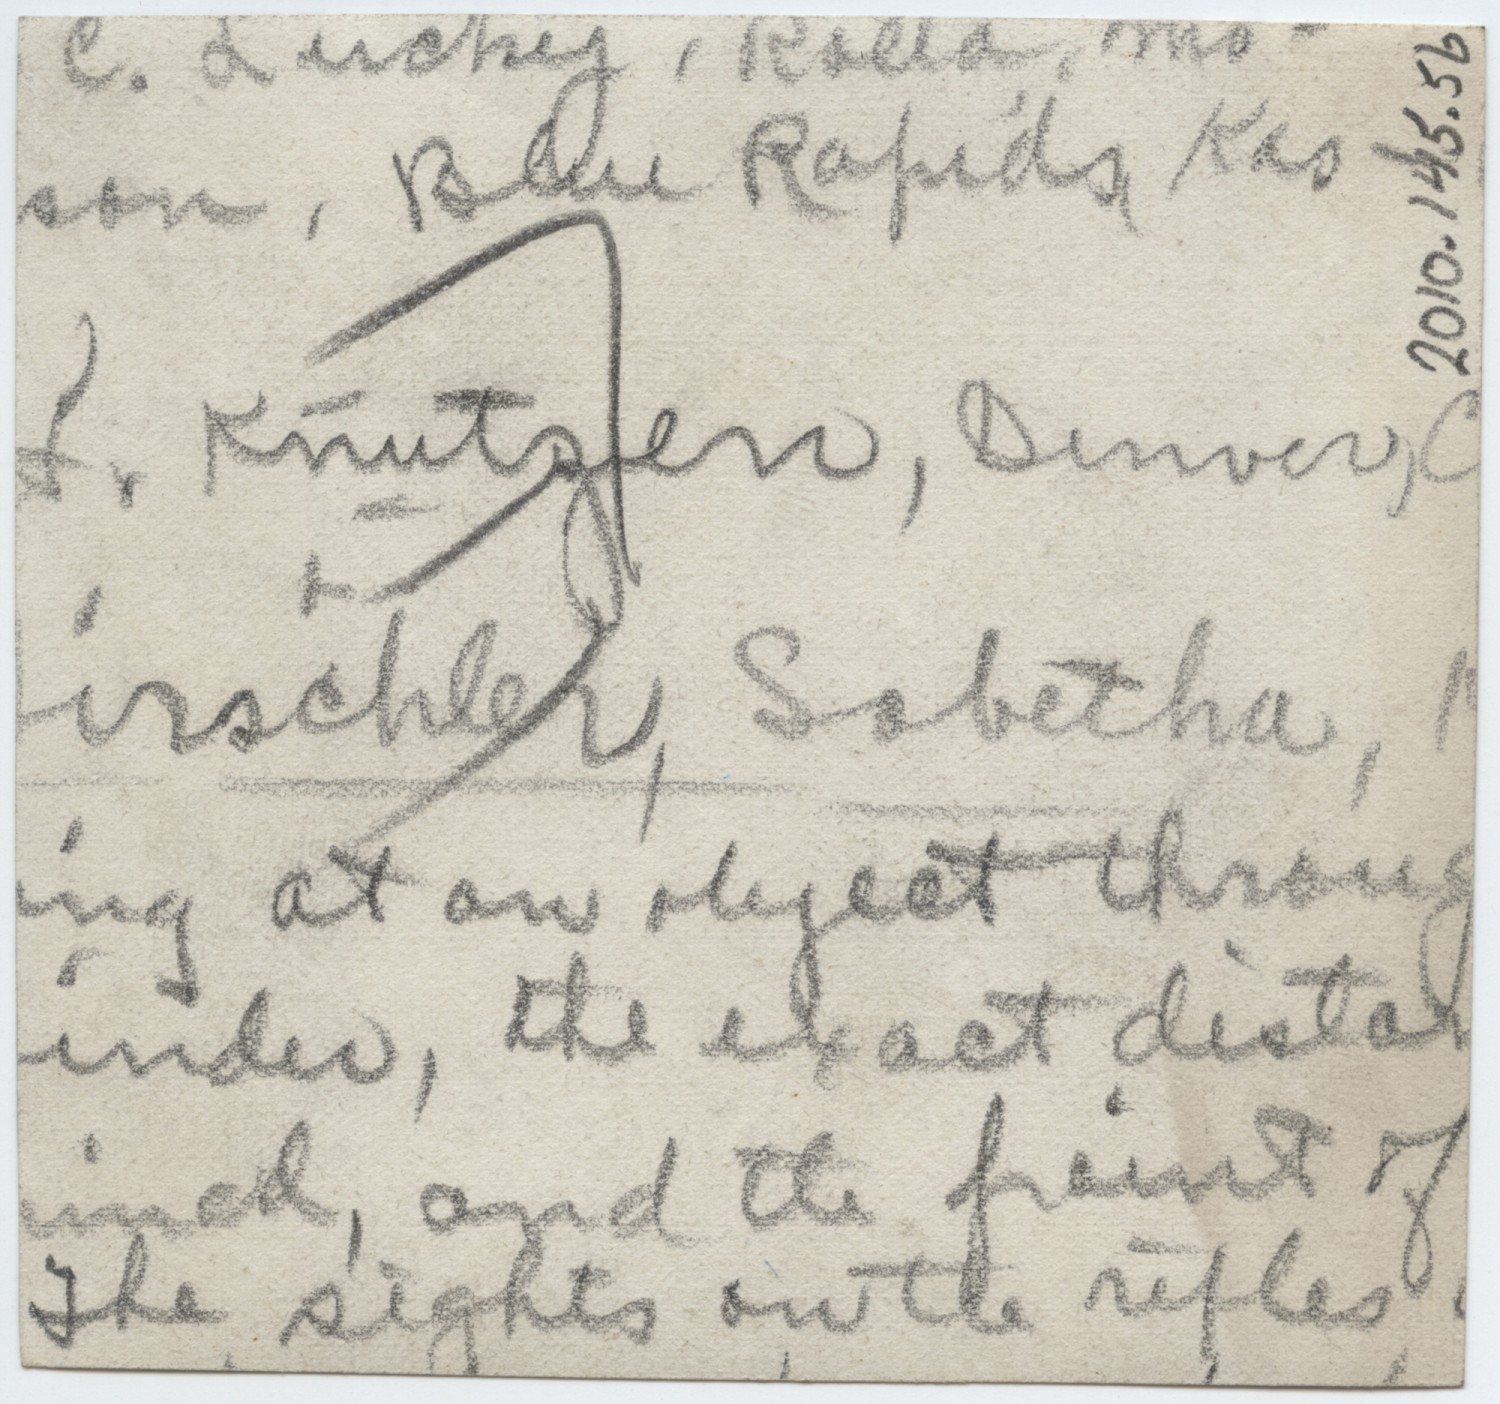 C. Luckey, Rolla, Mo-
son, Blue Rapids, Kas
L. Knutzen, Denver, C
irschler, Sabetha,
ing at an object throug
inder, the exact distan
ined, and the point of
The sights on the rifles,
2010.145.56